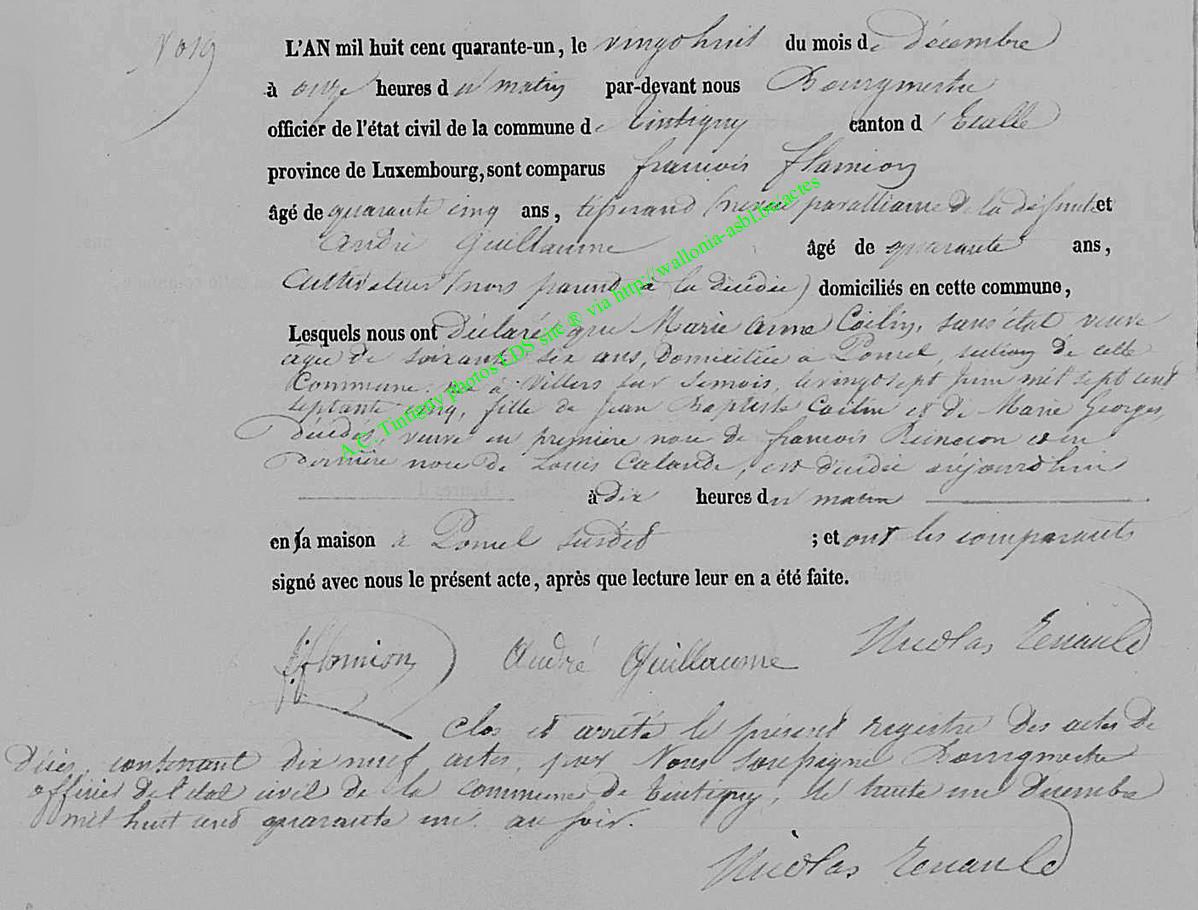 N° 19
L'AN mil huit cent quarante-un, le vingt huit du mois de Décembre
à onze heures du matin par-devant nous Bourgmestre
officier de l'état civil de la commune de Tintigny canton d'Etalle
province de Luxembourg, sont comparus francois Flamion
âgé de quarante cinq ans, tisserand (neveu paralliance de la défunte et
André Guillaume âgé de quarante ans,
Cultivateur (nors parent à la décédée) domiciliés en cette commune,
Lesquels nous ont Déclaré que Marie Anne Coëlin, sans état veuve
agée de soixante six ans, Domiciliée a Poncel section de cette
Commune, née à Villers sur Semois, le vingt sept juin mil sept cent
septante cinq, fille de Jean Baptiste Coëlin et de Marie Georges
Décédés, veuve en première noce de francois et en
Dernière noce de Louis Calande, est décédée aujourd'hui
à dix heures du matin
en sa maison à Poncel susdit ; et ont les comparants
signé avec nous le présent acte, après que lecture leur en a été faite.
f. flamion André Guillaume Nicolas Renauld
Clos et arrêté le présent registre des actes de
Décès, contenant dix neuf actes, par Nous soussigné Bourgmestre
officier de l'état civil de la Commune de Tintigny, le trente un décembre
mil huit cent quarante un au soir.
Nicolas Renauld
A.C. Tintigny photos EDS site ® via http://wallonia-asbl.be/actes